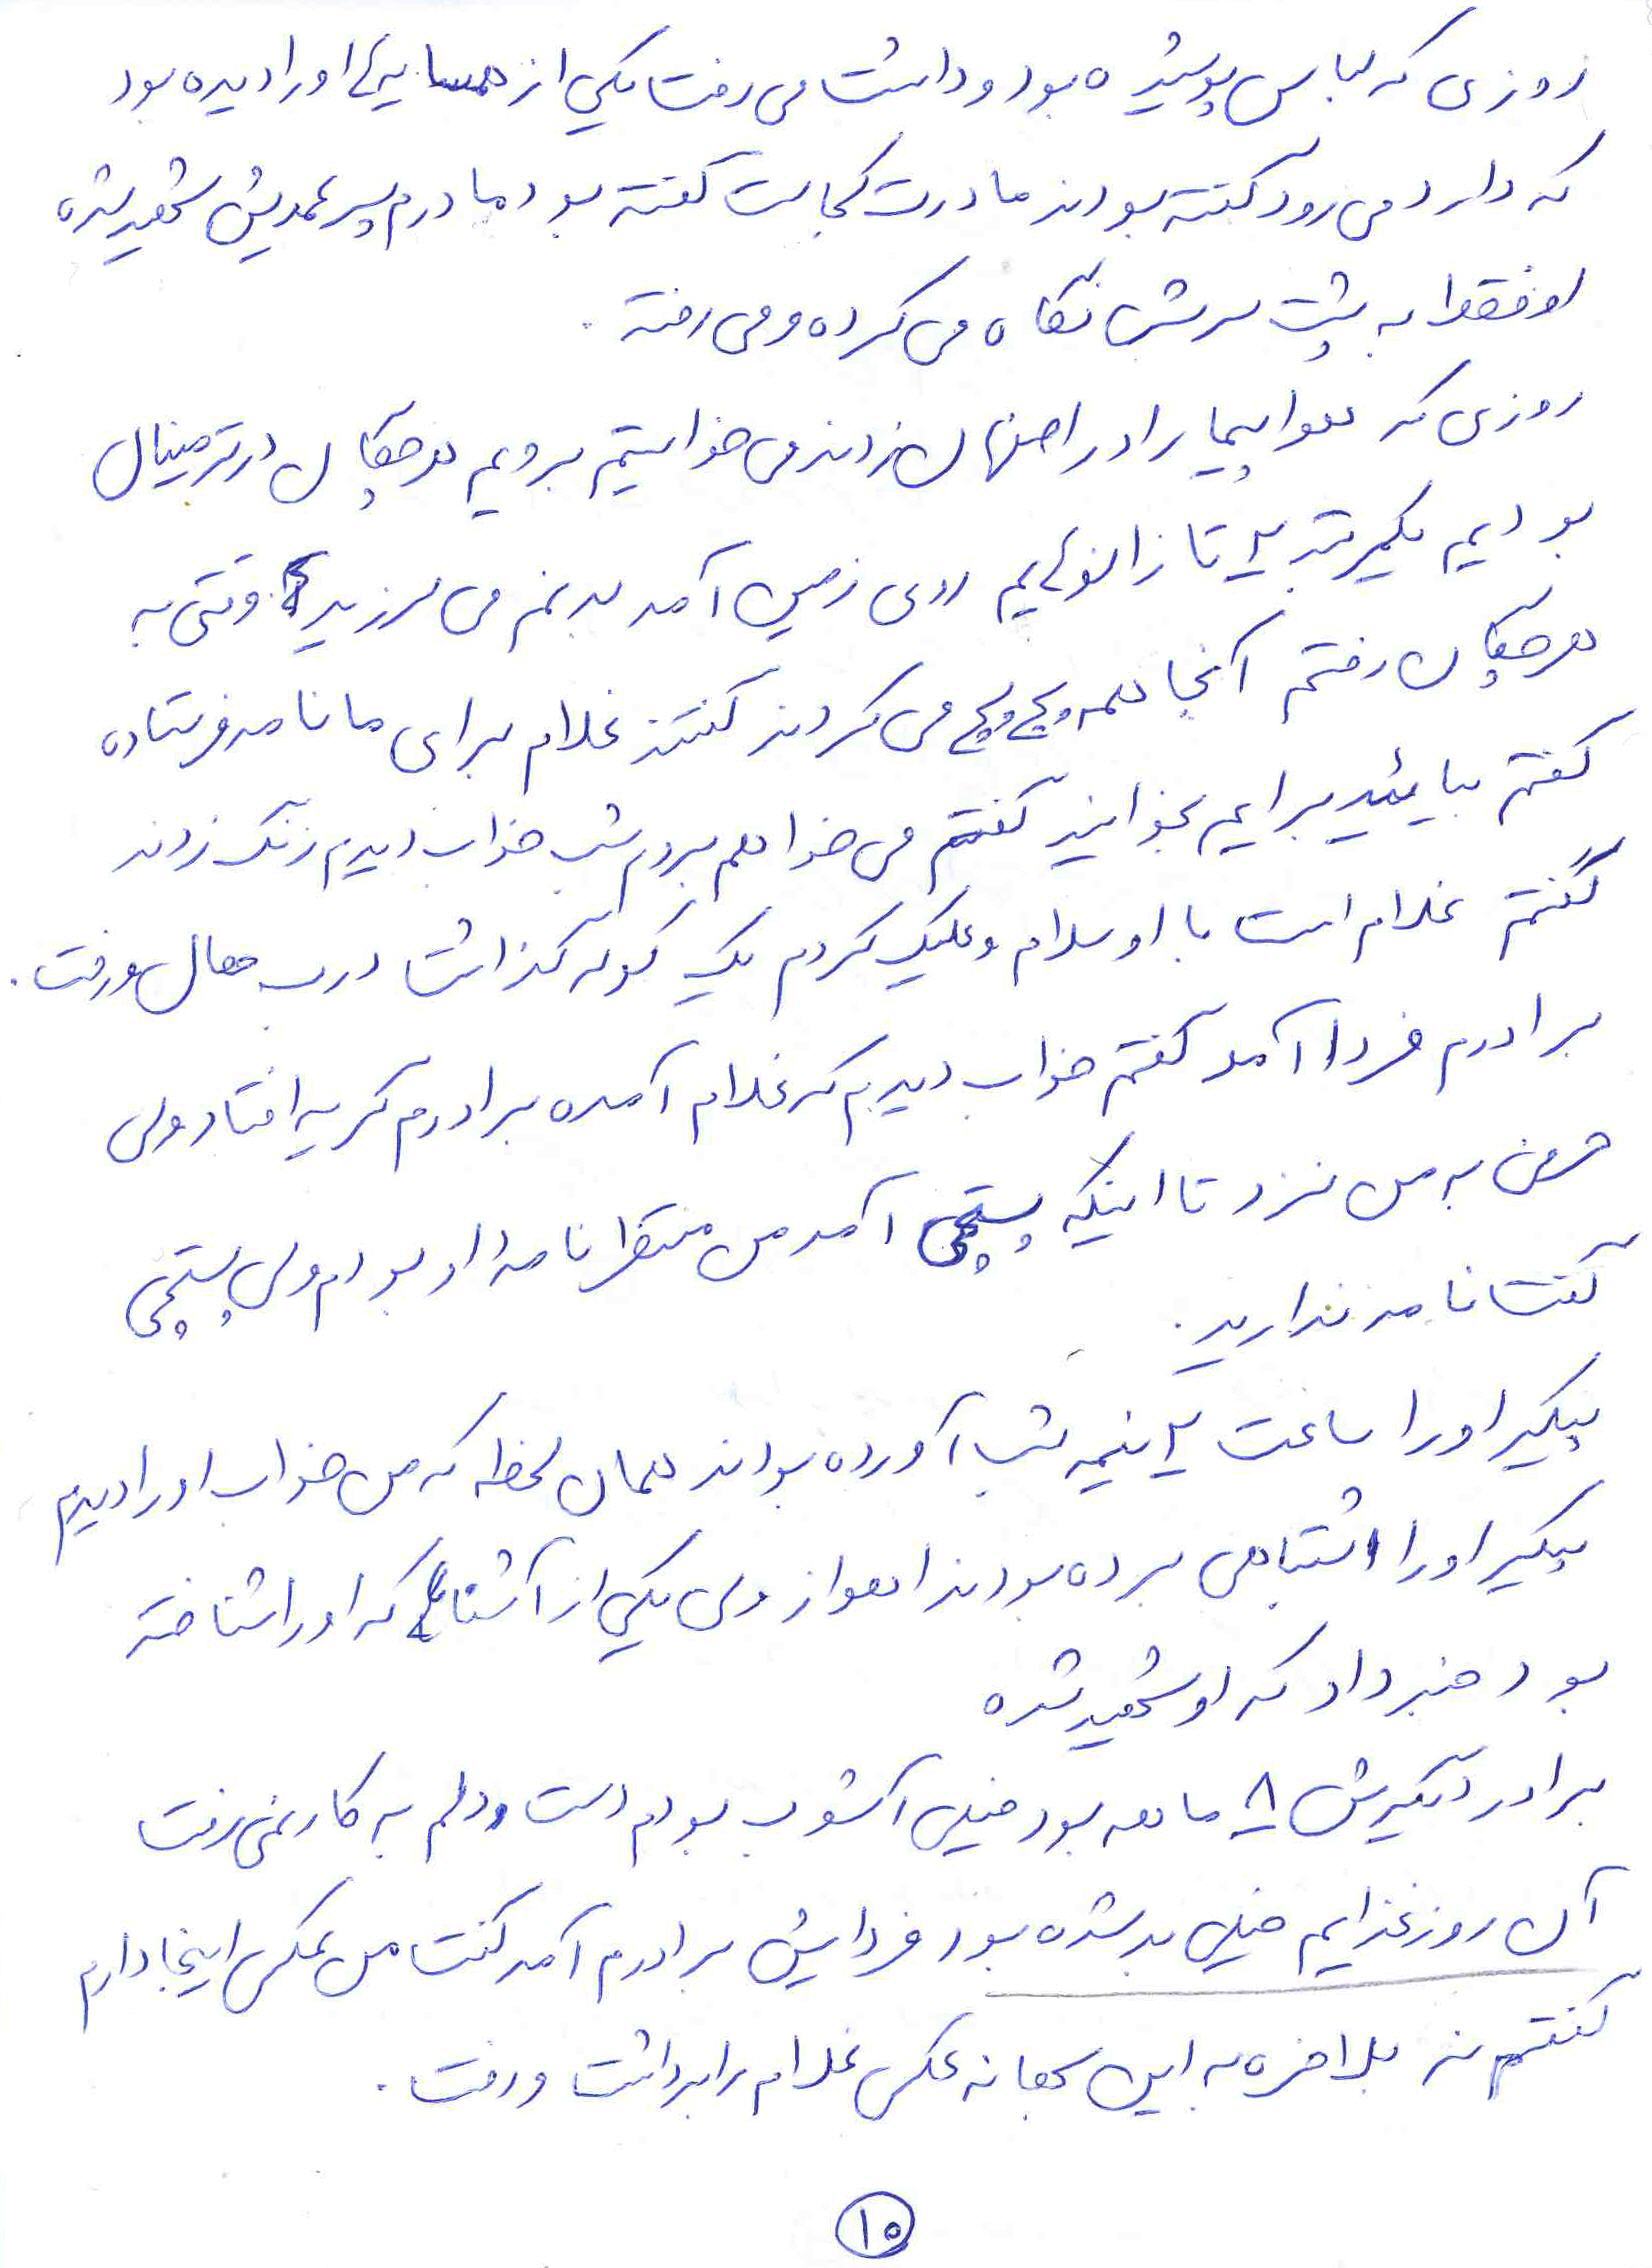 روزی که لباس پوشیده بود و داشت می رفت یکی از همسایه ها او را دیده بود
که دارد می رود گفته بودند مادرت کجاست گفته بود مادرم پسر عمه یش شهید شده
او فقط به پشت سرش نگاه می کرده و می رفته .
روزی که هواپیما را در اصفهان زدند می خواستیم برویم هرچگان در ترمینال
بودیم یکمرتبه ۲ تا زانوهایم روی زمین آمد بدنم می لرزید وقتی به
هرچگان رفتم آنجا همه پچ پچ می کردند گفتند غلام برای ما نامه فرستاده
گفتم بیائید برایم بخوانید گفتم می خواهم بروم شب خواب دیدم زنگ زدند
گفتم غلام است با او سلام و علیک کردم یک کوله گذاشت درب هال و رفت .
برادرم فردا آمد گفتم خواب دیدم که غلام آمده برادرم گریه افتاد ولی
حرفی به من نزد تا اینکه پستچی آمد من منتظر نامه او بودم ولی پستچی
گفت نامه ندارید .
پیکر او را ساعت ۲ نیمه شب آورده بودند همان لحظه که من خواب او را دیدم
پیکر او را اشتباهی برده بودند اهواز ولی یکی از آشناها که او را شناخته
بود خبر داد که او شهید شده
برادر دیگرش ۸ ماهه بود خیلی آشوب بودم دست و دلم به کار نمی رفت
آن روز غذایم خیلی بد شده بود فردایش برادرم آمد گفت من عکس اینجا دارم
گفتم نه بلاخره به این بهانه عکس غلام را برداشت و رفت .
۱۵